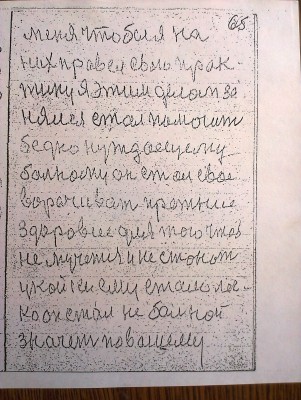 65
меня чтобы я на
них провел свою прак-
тику я этим делом за
нялся стал помогат
бедно нуждаещему
болному он стал свое
ворачиват прежние
здоровие для того чтоб
не мучится и не стонот
укой к ему стало ле-
ко он стал не болной
значет по вашему